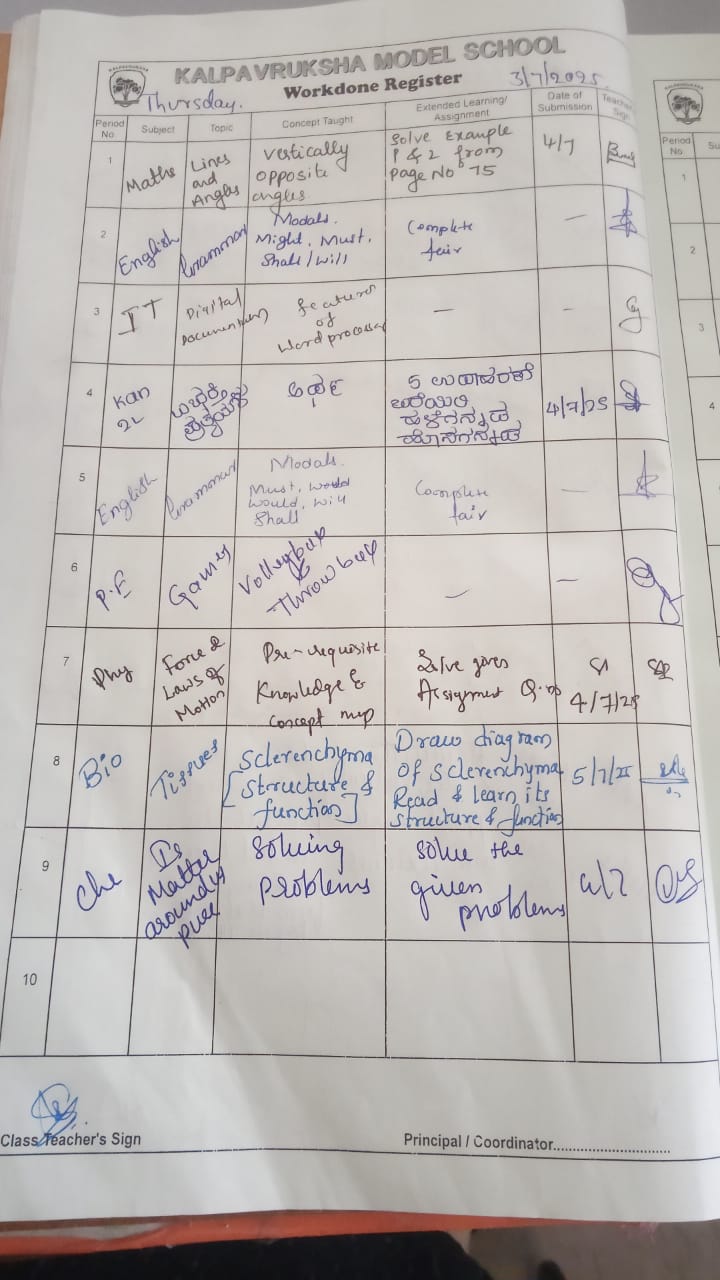 KALPAVRUKSHA MODEL SCHOOL
Workdone Register
Thursday.
3/7/2025
Period No.
Subject
Topic
Concept Taught
Extended Learning/
Assignment
Date of
Submission
Teacher
Sign
1
Maths
Lines
and
Angles
Vertically
opposite
angles.
Solve Example
1 & 2 from
page No 75
4/7
2
English
Grammar
Modals.
Might, Must,
Shall/Will
Complete
fair
—
3
IT
Digital
Documentation
features
of
Word processor
—
–
4
Kan
2L
ಅರ್ಥ
5 ಉದಾಹರಣೆ
ಬರೆಯಿರಿ
ಹಳೆಗನ್ನಡ
ಹೊಸಗನ್ನಡ
4/7/25
5
English
Grammar
Modals.
Must, would
would, will
Shall
Complete
fair
—
6
P.E
Games
Volleyball
&
Throwball
—
—
7
Phy
Force &
Laws of
Motion
Pre-requisite
Knowledge &
Concept map
Solve given
Assignment
4/7/25
8
Bio
Tissues
Sclerenchyma
[Structure &
function]
Draw diagram
of sclerenchyma
Read & learn its
structure & function
5/7/25
9
Che
Is
Matter
around us
pure
Solving
problems
Solve the
given
problems
4/7
10
Class Teacher's Sign
Principal / Coordinator..............................
Period
No.
Su
1
2
3
4